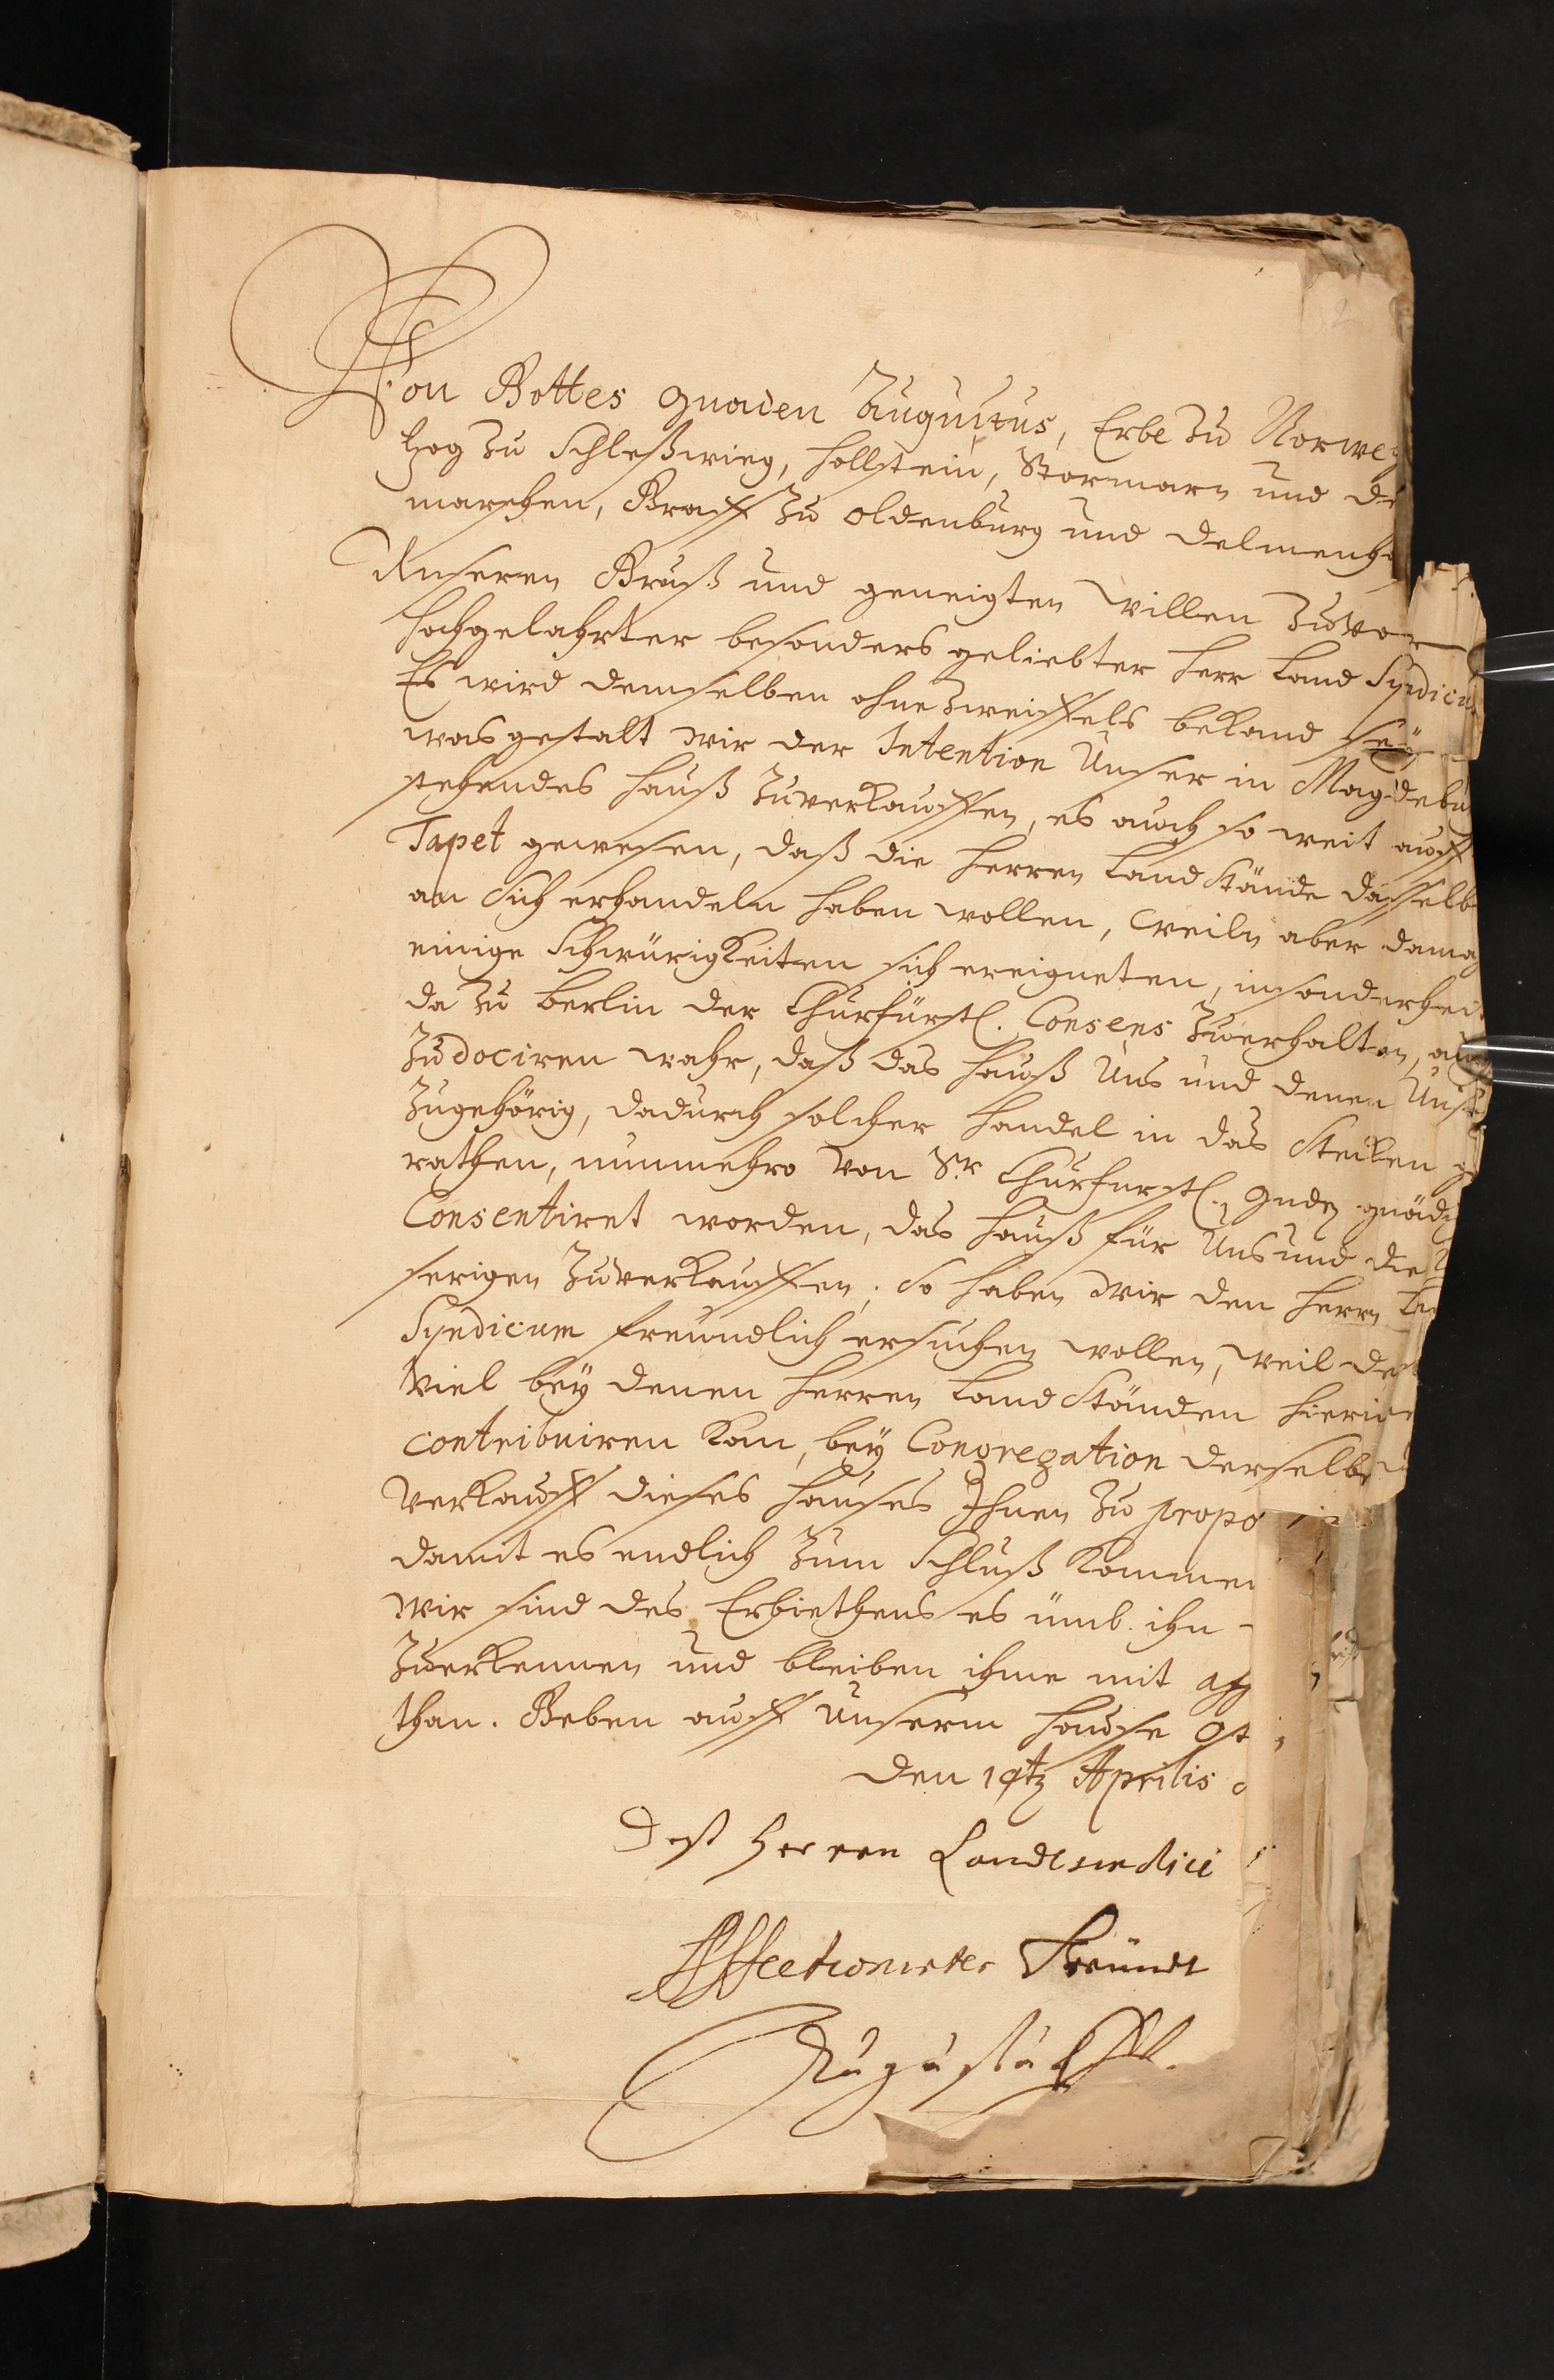 Von Gottes gnaden Augustus, Erbe zu Norweg
tzog zu Schleßwieg, Hollstein, Stormarn und de
marschen, Graff zu Oldenburg und Delmenho
Unseren Gruß und geneigten willen zuvor
Hochgelahrter besonders geliebter Herr Land Syndicu
Es wird demselben ohne Zweiffels bekand sey
was gestalt wir der Intention Unser in Magdebu
stehendes Hauß zuverkauffen, es auch so weit auff
Tapet gewesen, daß die Herren Land Stände dasselb
an Sich erhandeln haben wollen, weiln aber damah
einige Schwürigkeiten sich ereigneten, insonderheit
da zu Berlin der Churfürstl. Consens zuerhalten, auch
zu dociren wahr, daß das Hauß Uns und denen Unse
zugehörig, dadurch solcher Handel in das Stecken ge
rathen, nunmehro von Sr. Churfürstl. Gndn gnädi
Consentiret worden, das Hauß für Uns und die U
serigen zuverkauffen; So haben wir den Herrn La
Syndicum freundlich ersuchen wollen, weil de
viel bey denen Herren Land Ständen hierin
contribuiren kan, bey Congregation derselbe
verkauff dieses Hauses Ihnen zu propo
damit es endlich zum Schluß kommen
wir sind des Erbiethens es ümb ihn
zuerkennen und bleiben ihme mit aff
than. Geben auff Unserm Hause Ost
den 19tn Aprilis
Deß Herren Landtsindici
Affectionirter Freundt
Augustus